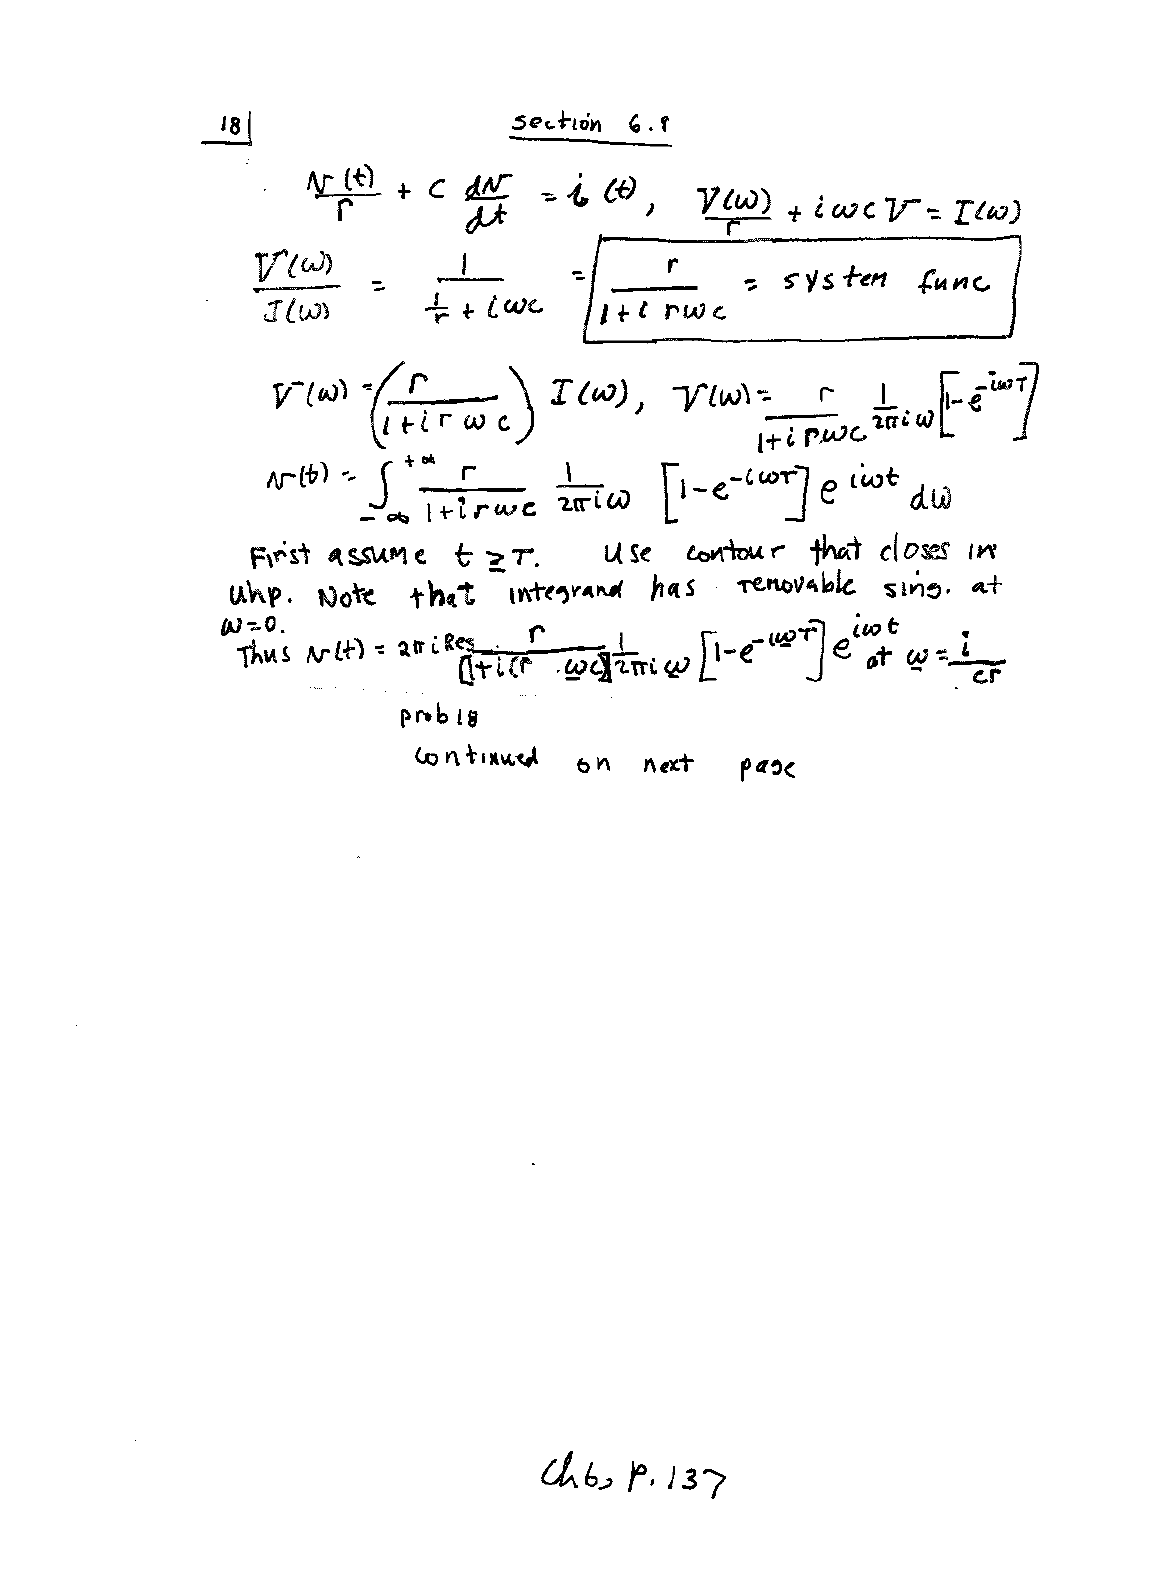 18| section 6.9
v(t)/r + c dv/dt = i(t), V(ω)/r + iωc V = I(ω)
V(ω)/I(ω) = 1/(1/r + iωc) = r/(1+i rωc) = system func
V(ω) = (r/(1+i r ω c)) I(ω), V(ω) = r/(1+i rωc) 1/(2πiω) [1-e^{-iωT}]
v(t) = ∫_{-∞}^{+∞} r/(1+i rωc) 1/(2πiω) [1-e^{-iωT}] e^{iωt} dω
First assume t ≥ T. Use contour that closes in
uhp. Note that integrand has removable sing. at
ω=0.
Thus v(t) = 2πi Res r/[1+i(r ωc)] 1/(2πiω) [1-e^{-iωT}] e^{iωt} at ω = i/cr
prob 18
continued on next page
Ch 6, p. 137